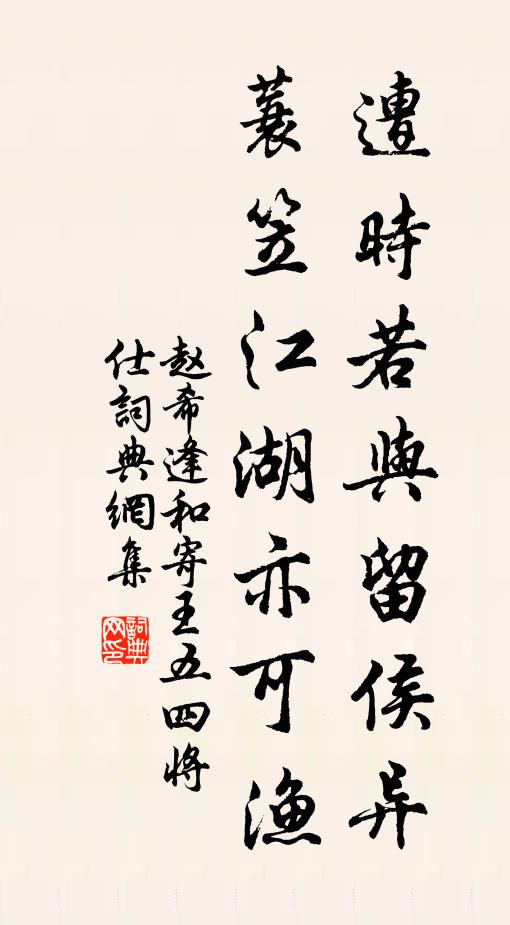 遭時若與留侯异
蓑笠江湖亦可漁
赵希逢和寄王五四将
仕詞典網集
詞典网印